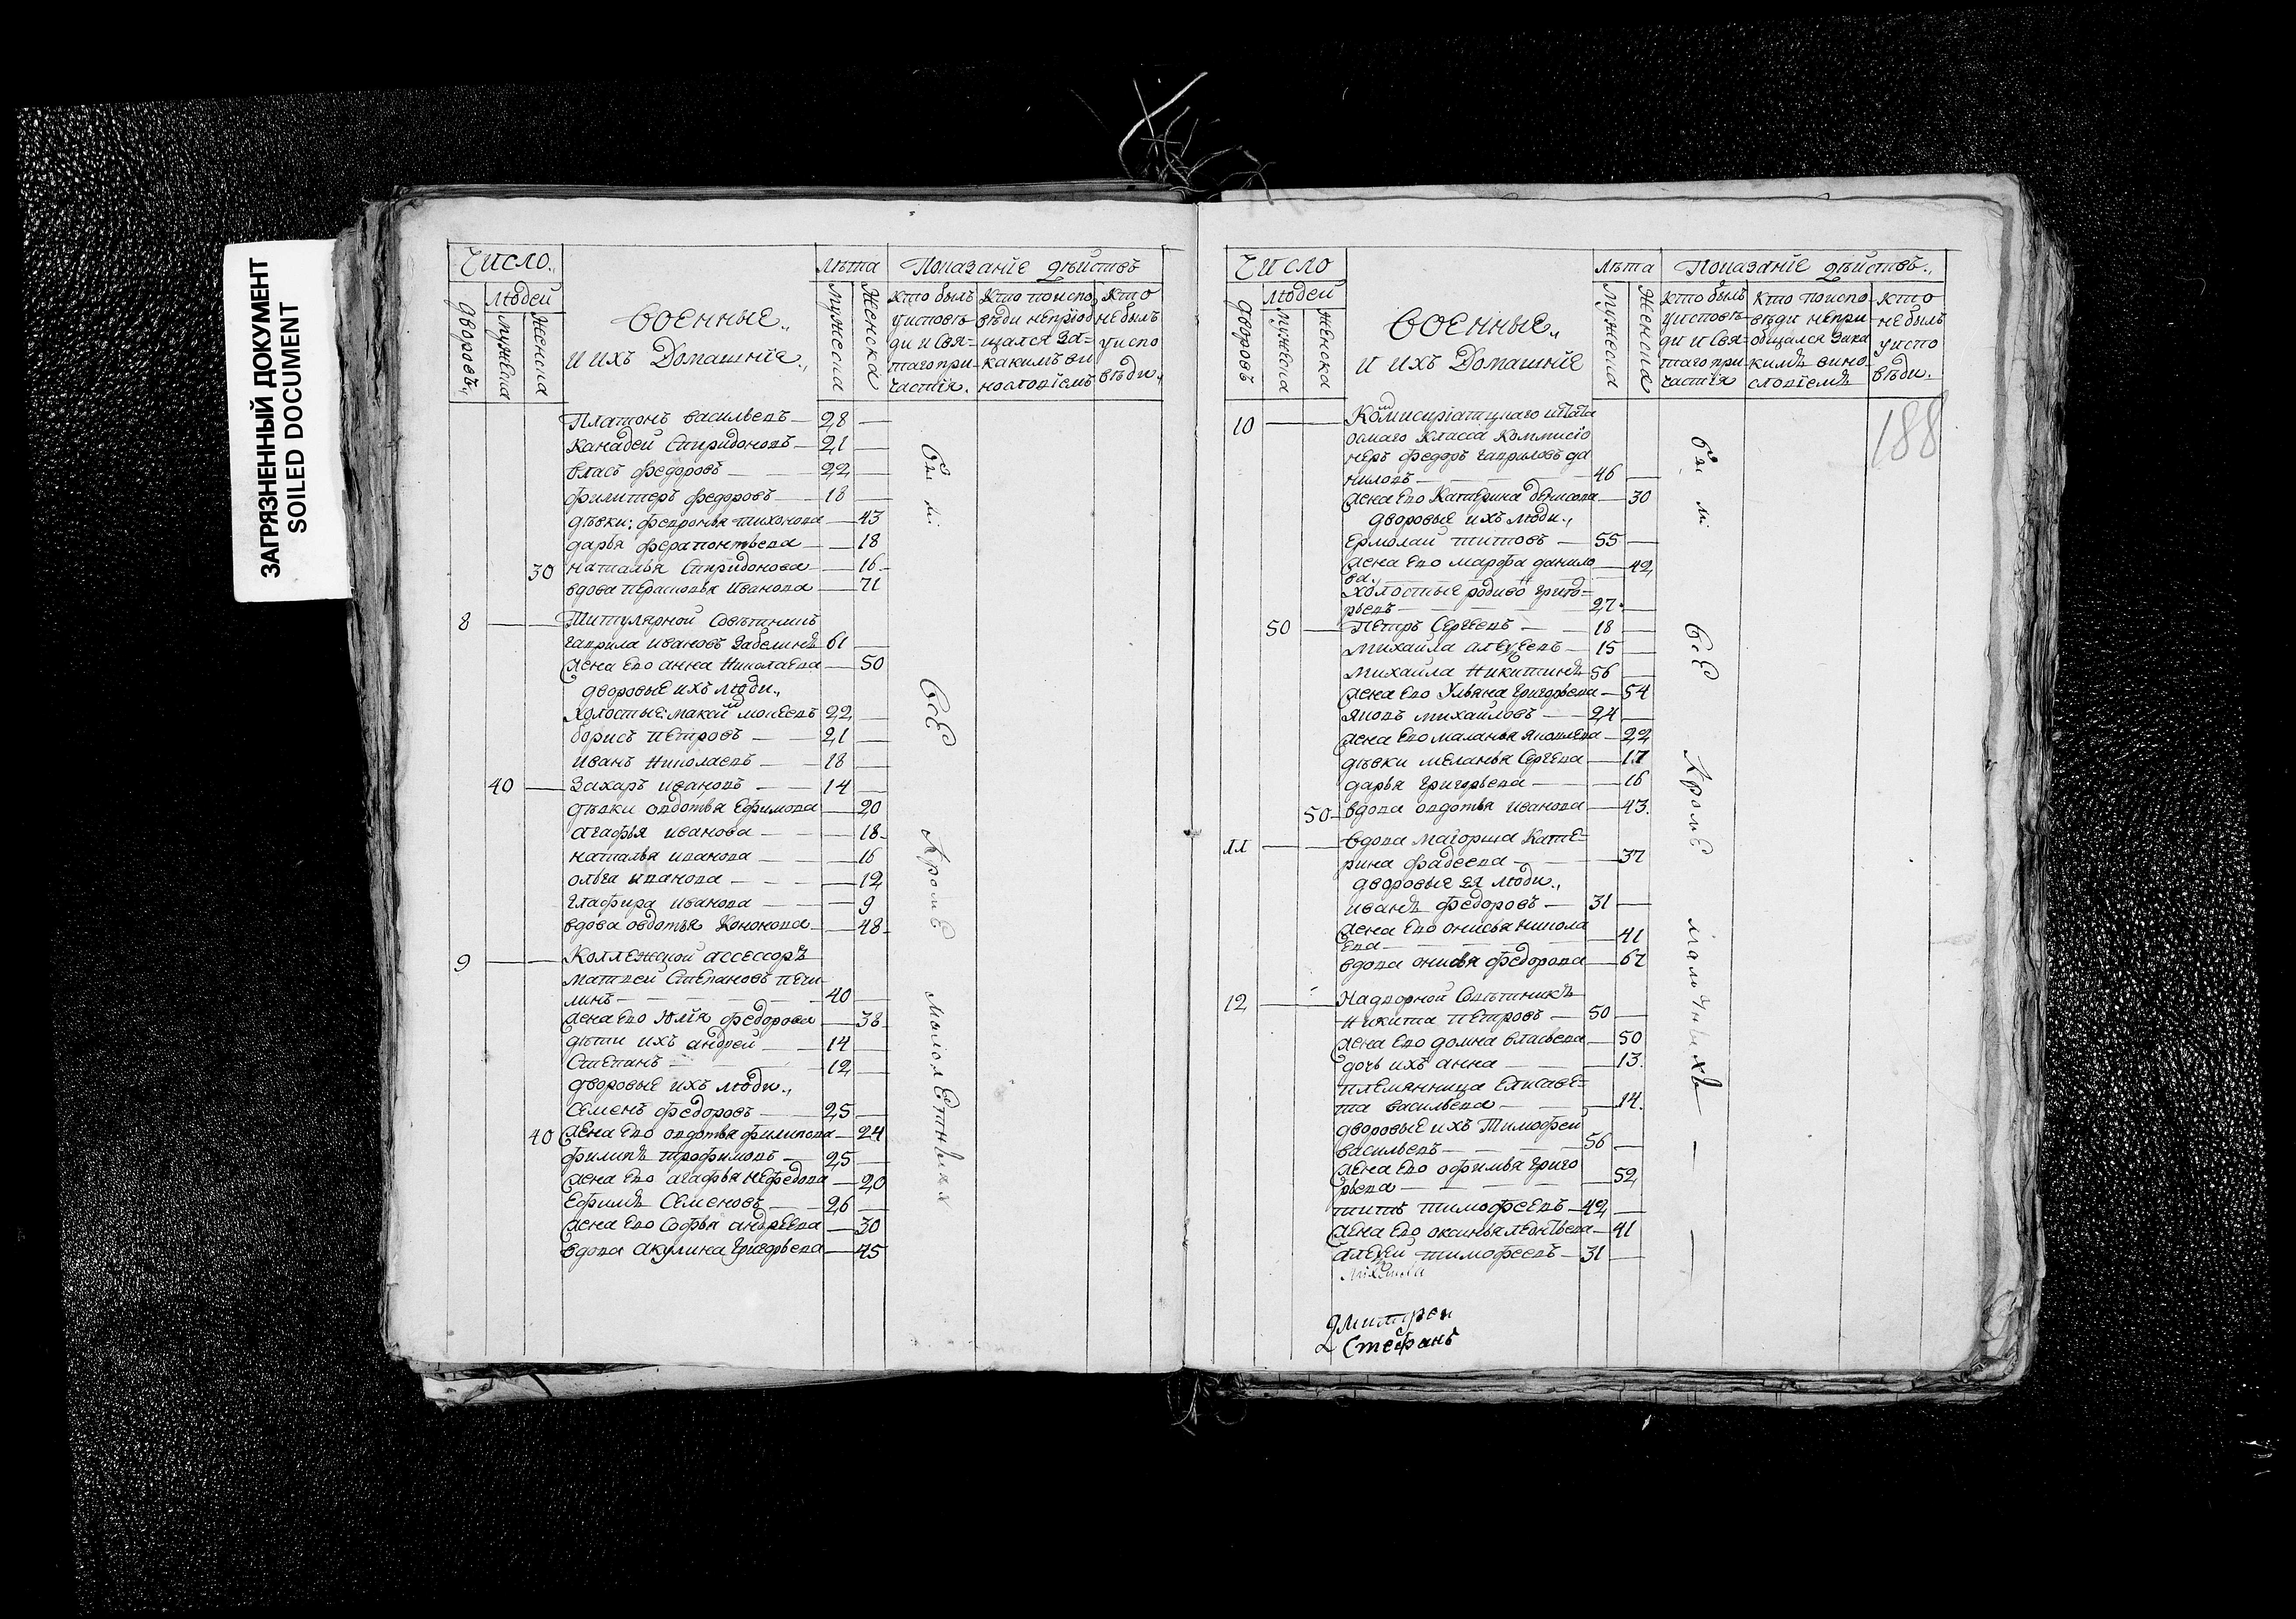 ЗАГРЯЗНЕННЫЙ ДОКУМЕНТ
SOILED DOCUMENT
Число.
Людей
дворовъ
мужеска
женска
военные
и ихъ Домашнїе
лѣта
мужеска
Женска
Показанїе дѣйствъ
Кто былъ у исповѣди и святаго причастїя.
Кто по исповѣди не прїобщался за какимъ винословїемъ
Кто не былъ у исповѣди.
Платонъ васильевъ 28
Спиридоновъ 21
власъ федоровъ 22
федоровъ 18
дѣвки: февронья тихонова 43
дарья ферапонтьева 18
30 наталья Спиридонова 16
вдова перасковья Иванова 71
8 Титулярной Совѣтникъ
гаврила ивановъ Забелинъ 61
жена ево анна Николаева 50
дворовые ихъ люди.,
холостые: максимъ моисеевъ 22
борисъ петровъ 21
иванъ Николаевъ 18
40 Захаръ ивановъ 14
дѣвки овдотья Ефимова 20
агафья иванова 18
наталья иванова 16
ольга иванова 12
глафира иванова 9
вдова овдотья Кононова 48
9 Коллежской ассессоръ
матвей Степановъ
40
жена ево Юлїя федорова 38
дѣти ихъ андрей 14
Степанъ 12
дворовые ихъ люди.,
Семенъ федоровъ 25
40 жена ево овдотья филипова 24
филипъ трофимовъ 25
жена ево агафья Нефедова 20
Ефимъ Семеновъ 26
жена ево Софья андреева 30
вдова акулина григорьева 45
были
всѣ
Кромѣ
малолѣтныхъ
Число
людей
дворовъ
мужеска
женска
военные
и ихъ Домашнїе
лѣта
мужеска
Женска
Показанїе дѣйствъ.,
Кто былъ у исповѣди и святаго причастїя
Кто по исповѣди не прїобщался за какимъ винословїемъ
Кто не былъ у исповѣди.
188
10 Комисарїатцкаго штата
осмаго класса Коммисїо
неръ федоръ гавриловъ да
ниловъ 46
жена ево Катерина денисова 30
дворовые ихъ люди.,
Ермолай титовъ 55
жена ево марфа данило
ва. 42
Холостые родивонъ григо=
рьевъ 27
50 Петръ Сергеевъ 18
михайла алексеевъ 15
михайла Никитинъ 56
жена ево Ульяна григорьева 54
яковъ михайловъ 24
жена ево маланья яковлева 22
дѣвки меланья Сергева 17
дарья григорьева 16
50 вдова овдотья иванова 43
11 вдова магорша Кате=
рина фадеева 37
дворовые ея люди.,
иванъ федоровъ 31
жена ево онисья никола
ева 41
вдова онисья федорова 67
12 Надворной Совѣтникъ
Никита петровъ 50
жена ево домна власьева 50
дочь ихъ анна 13
племянница Елисаве=
та васильева 14
дворовые ихъ Тимофей
васильевъ 56
жена ево офимья григо
рьева 52
титъ тимофеевъ 42
жена ево оксинья леонтьева 41
алексей тимофеевъ 31
были
всѣ
Кромѣ
малолѣтныхъ
Дмитрей
Стефанъ